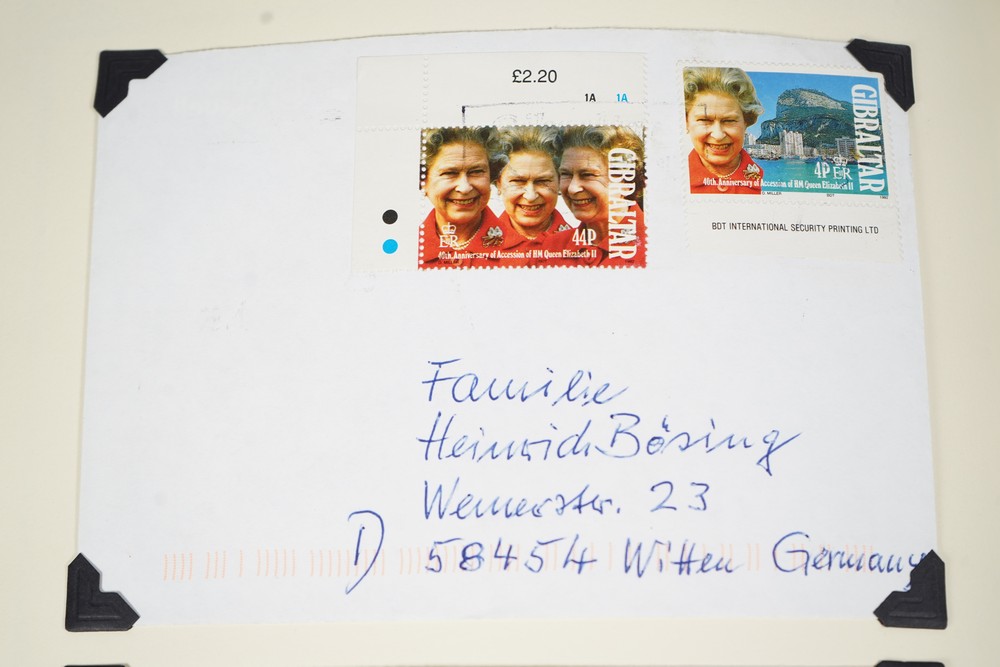 £2.20
1A 1A
GIBRALTAR
ER
44P
40th Anniversary of Accession of HM Queen Elizabeth II
GIBRALTAR
4P ER
40th Anniversary of Accession of HM Queen Elizabeth II
G. MILLER BDT 1992
BDT INTERNATIONAL SECURITY PRINTING LTD
Familie
Heinrich Bösing
Wemerstr. 23
D 58454 Witten Germany